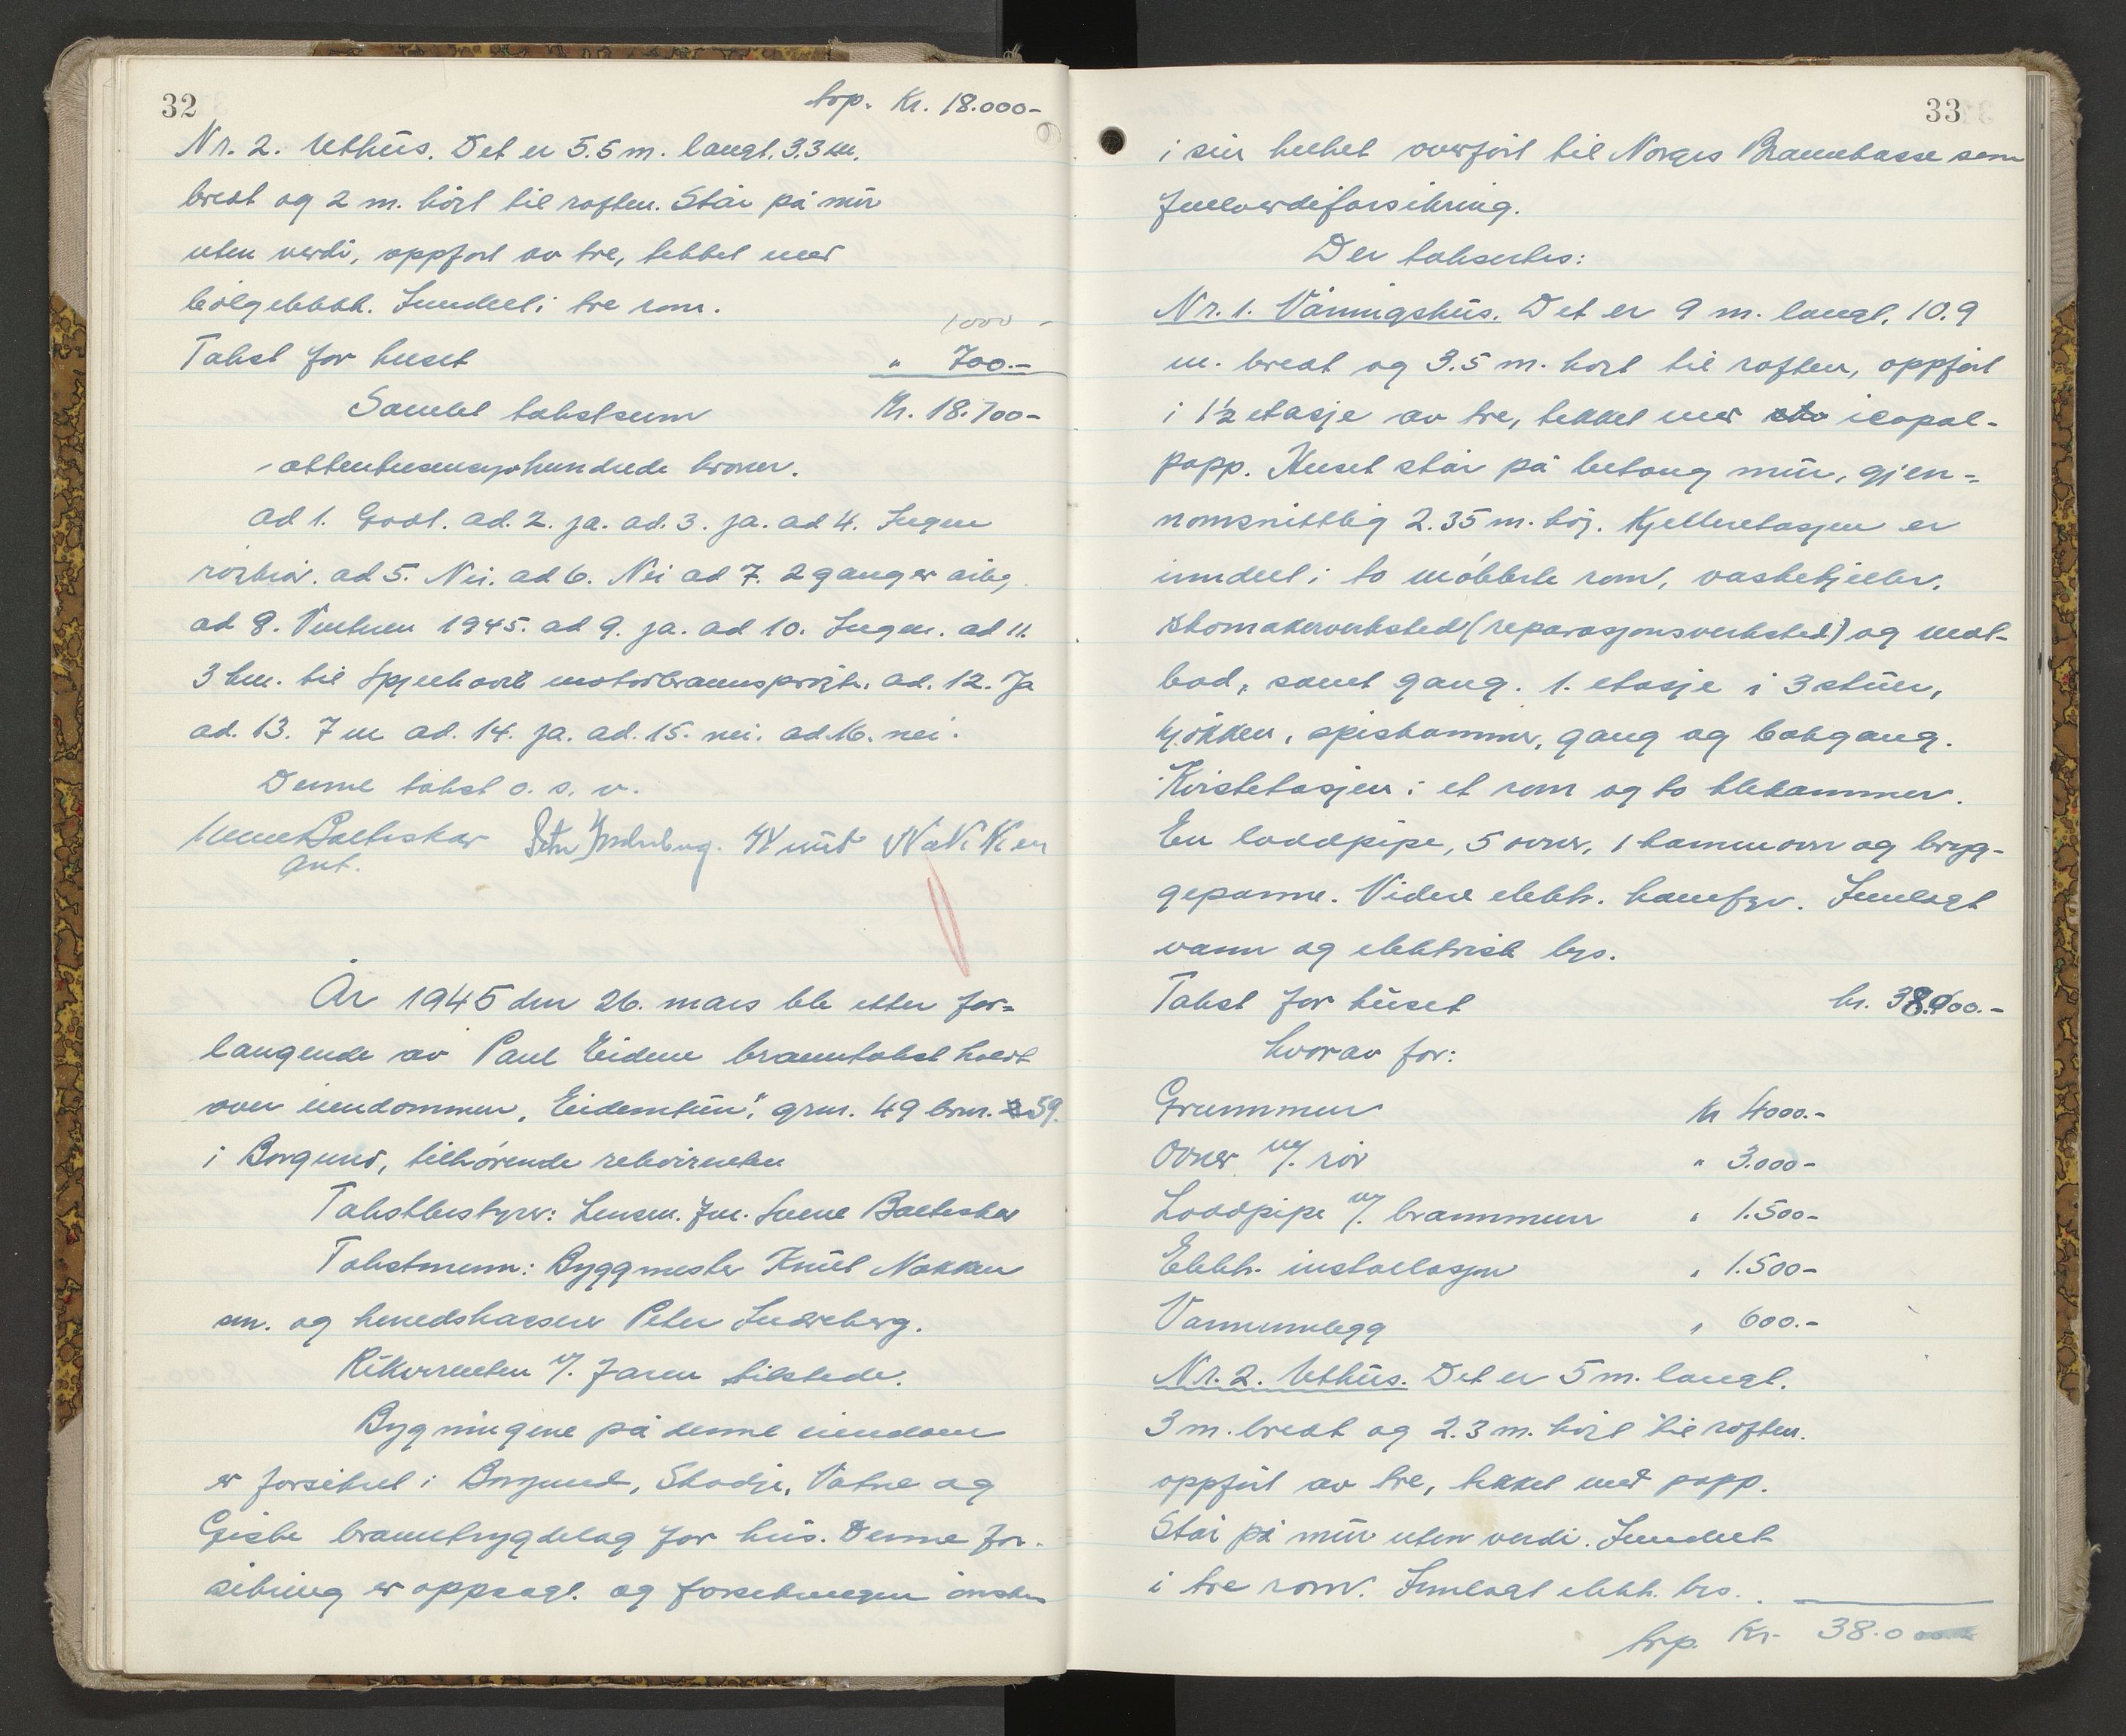 32
trp. Kr. 18.000-
Nr. 2. Uthus. Det er 5.5 m. langt, 3.3 m.
bredt og 2 m. høgt til raften. Står på mur
uten verdi, oppført av tre, tekket med
bølgeblekk. Inndelt i tre rom.
1000 -
Takst for huset " 700.-
Samlet takstsum Kr. 18.700-
- attentusensyvhundrede kroner.
ad 1. Godt. ad. 2. ja. ad. 3. ja. ad 4. Ingen
ad 5. Nei. ad 6. Nei ad 7. 2 ganger årlig,
ad 8. Vinteren 1945. ad 9. ja. ad 10. Ingen. ad 11.
3 km. til Spjelkavik motorbrannsprøyte. ad. 12. Ja
ad. 13. 7 m ad. 14. ja. ad. 15. nei. ad. 16. nei.
Denne takst o. s. v.
Peter Indreberg. Knut Nakken
År 1945 den 26. mars ble etter for-
langende av Paul Eidem branntakst holdt
over eiendommen, "Eidemtun", grnr. 49 brnr. 59.
i Borgund, tilhørende rekvirenten
Takstbestyrer: Lensm. fm.
Takstmenn: Byggmester Knut Nakken
sen. og herredskasserer Peter Indreberg.
Rekvirenten tilstede.
Bygningene på denne eiendom
er forsikret i Borgund, Skodje, Vatne og
Giske branntrygdelag for hus. Denne for-
sikring er oppsagt og forsikringen ønskes
33
i sin helhet overført til Norges Brannkasse som
fullverdiforsikring.
Der takseres:
Nr. 1. Våningshus. Det er 9 m. langt, 10.9
m. bredt og 3.5 m. høgt til raften, oppført
i 1½ etasje av tre, tekket med icopal-
papp. Huset står på betong mur, gjen-
nomsnittlig 2.35 m. høg. Kjelleretasjen er
inndelt i to møblerte rom, vaskekjeller,
skomakerverksted (reparasjonsverksted) og mat-
bod, samt gang. 1. etasje i 3 stuer,
kjøkken, spiskammer, gang og bakgang.
Kvistetasjen i et rom og to klekammer.
En loddpipe, 5 ovner, 1 kammerovn og bryg-
gepanne. Videre elektr. komfyr. Innlagt
vann og elektrisk lys.
Takst for huset kr. 38.000.-
hvorav for:
Grunnmur kr 4000.-
Ovner m/. rør " 3.000-
Loddpipe m/. brannmur " 1.500-
Elektr. installasjon " 1.500-
Vanninnlegg " 600.-
Nr. 2. Uthus. Det er 5 m. langt,
3 m. bredt og 2.3 m. høgt til raften.
oppført av tre, tekket med papp.
Står på mur uten verdi. Inndelt
i tre rom. Innlagt elektr. lys.
trp. Kr. 38.0